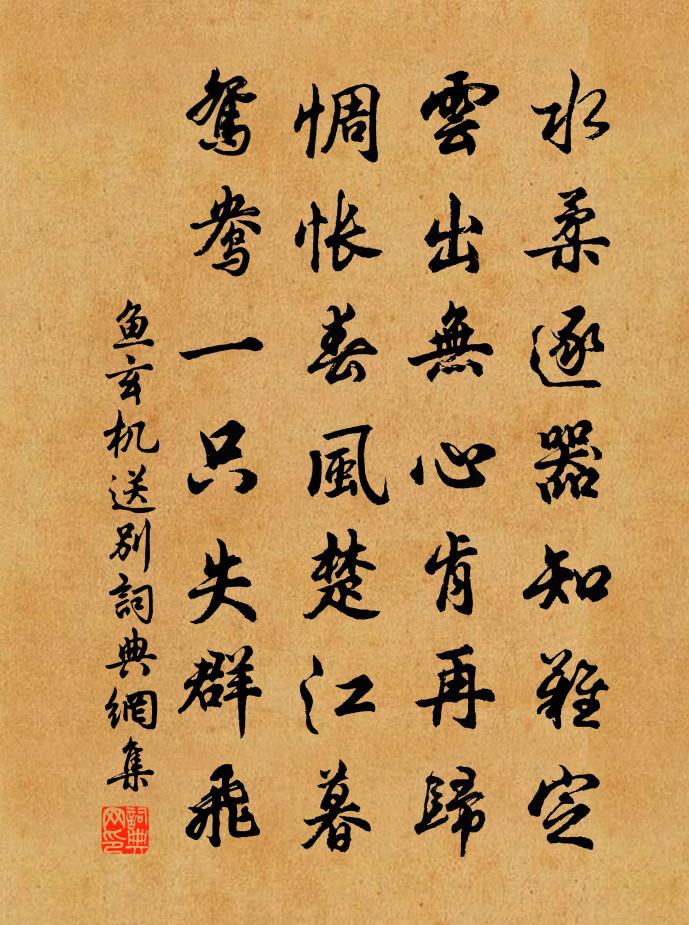 水柔逐器知難定
雲出無心肯再歸
惆悵春風楚江暮
鴛鴦一只失群飛
魚玄机送别詞典網集
詞典网印